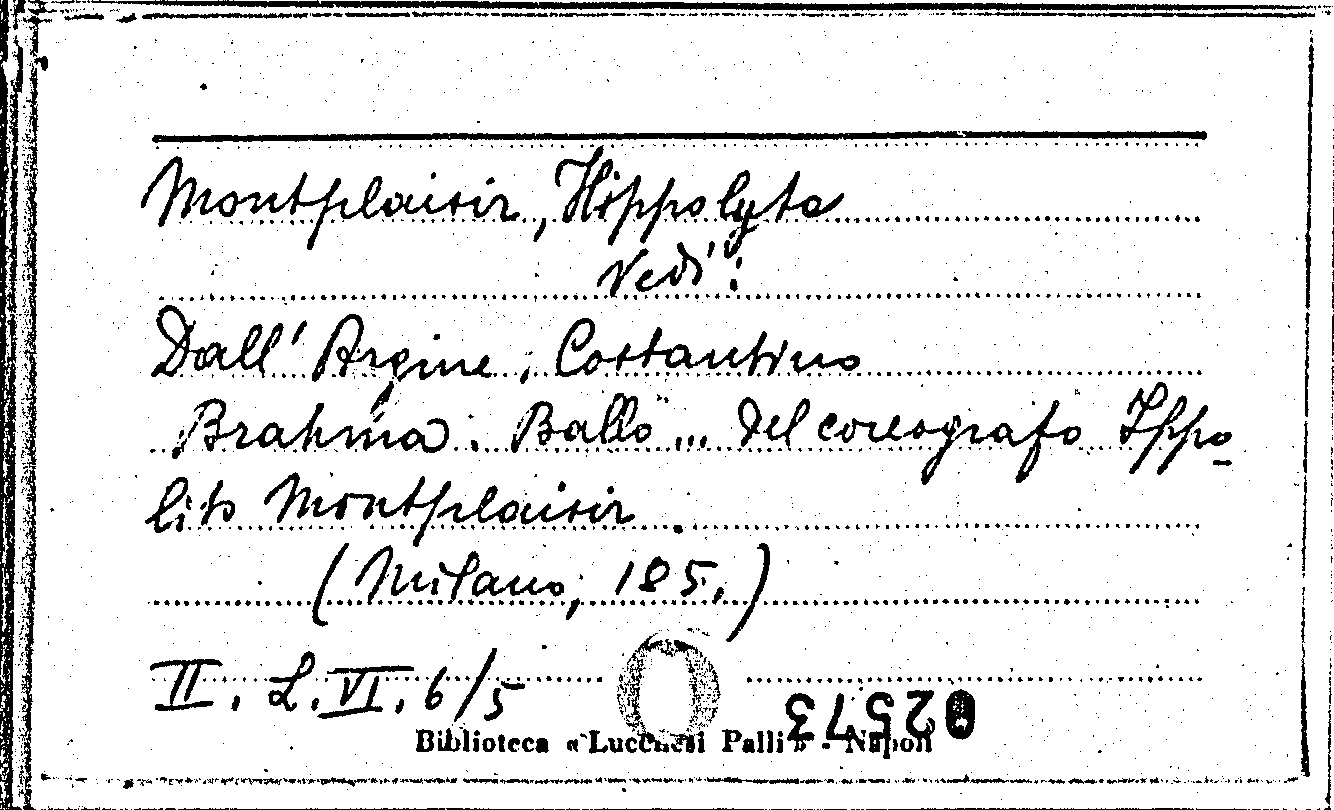 Montplaisir, Hippolyte
Vedi:
Dall'Argine, Costantino
Brahma. Ballo ... del coreografo Ippo-
lito Montplaisir.
(Milano, 185.)
II. L. VI. 6/5
02573
Biblioteca «Lucchesi Palli» - Napoli